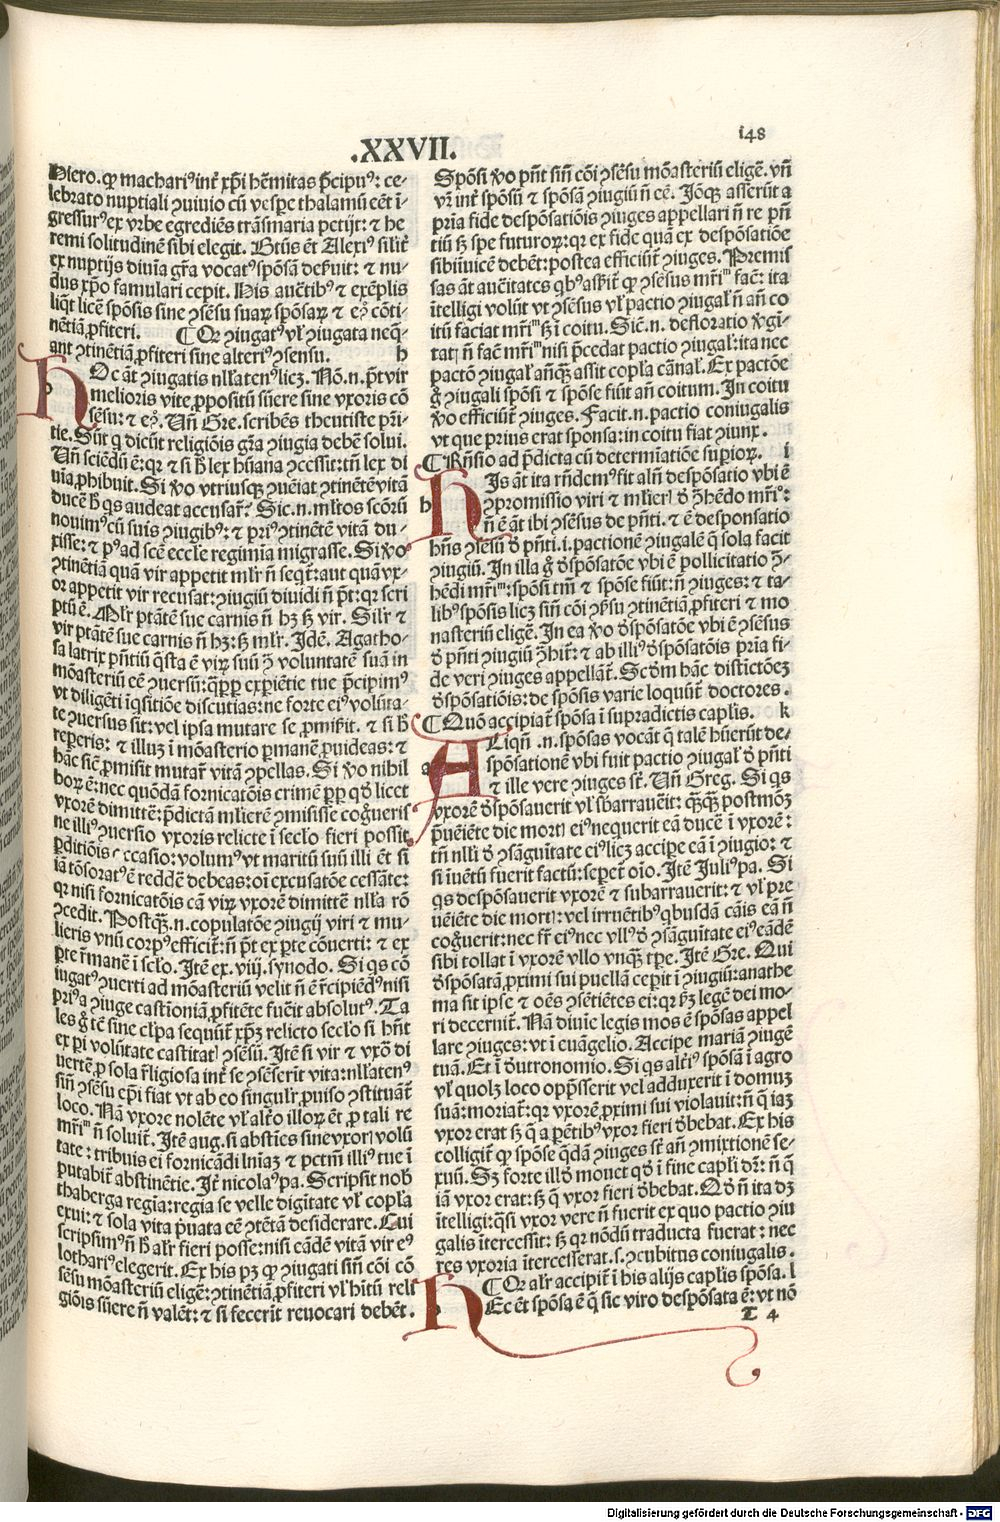 .XXVII.
148
Hiero. ꝙ machariꝰ int̄ xp̄i hēmitas p̄cipuꝰ: ce-
lebrato nuptiali ꝯuiuio cū vespe thalamū cēt ī
gressurꝰ ex vrbe egrediēs trāsmaria petijt: ⁊ he
remi solitudinē sibi elegit. Btūs ēt Alexiꝰ silit̄
ex nuptijs diuīa gr̄a vocatꝰ spōsā deẜuit: ⁊ nu-
dus xp̄o famulari cepit. His auc̄tibꝰ ⁊ exēplis
liq̄t licē spōsis sine ꝯsēsu suaꝝ spōsaꝝ ⁊ eꝯ cōti-
nētiā ꝓfiteri. ¶ Qr ꝯiugatꝰ vl̓ ꝯiugata neq̄-
ant ꝯtinētiā ꝓfiteri sine alteriꝰ ꝯsensu. h
HOc āt ꝯiugatis nll̓atenꝰ licꝫ. Nō .n. p̄t vir
melioris vite ꝓpositū sūere sine vxoris cō
sēsu: ⁊ eꝯ. Vn̄ Gre. scribēs theutiste pri-
tie. Sūt q dicūt religiōis gr̄a ꝯiugia debē solui.
Vn̄ sciēdū ē: qr ⁊ si h̄ lex hūana ꝯcessit: tn̄ lex di
uīa ꝓhibuit. Si v̓o vtriusqꝫ ꝯuēiat ꝯtinētē vitā
ducē h̄ qs audeat accusar̄? Sic .n. ml̓tos scōrū
nouimꝰ cū suis ꝯiugibꝰ: ⁊ priꝰ ꝯtinētē vitā du-
xisse: ⁊ pꝰ ad scē eccl̓e regimīa migrasse. Si v̓o
ꝯtinētiā quā vir appetit ml̓r n̄ seqt̄: aut quā vx-
or appetit vir recusat: ꝯiugiū diuidi n̄ p̄t: qr scri
ptū ē. Ml̓r ptātē sue carnis n̄ hꝫ sꝫ vir. Sil̓r ⁊
vir ptātē sue carnis n̄ hꝫ: sꝫ ml̓r. Idē. Agatho-
sa latrix pn̄tiū q̄sta ē viꝝ suū ꝯ̄ voluntatē suā in
mōasteriū eē ꝯuersū: q̄ꝓp̄ expiētie tue p̄cipimꝰ
vt diligēti īqsitiōe discutias: ne forte eiꝰ volūta-
te ꝯuersus sit: vel ipsa mutare se ꝓmiẜit. ⁊ si h̄
reperis: ⁊ illuꝫ ī mōasterio ꝑmanē ꝓuideas: ⁊
hāc siē ꝓmisit mutar̄ vitā ꝯpellas. Si v̓o nihil
hoꝝ ē: nec quōdā fornicatōis crimē ꝑp qd̓ licet
vxorē dimittē: p̄dictā mlierē ꝯmisisse cog̓ueris
ne illiꝰ ꝯuersio vxoris relicte ī sec̄lo fieri possit
ꝑditiōis occasio: volumꝰ vt maritū suū illi ēt si
iā tōsoratꝰ ē reddē debeas: oī excusatōe cessāte:
qr nisi fornicatōis cā viꝝ vxorē dimittē nll̓a rō
ꝯcedit. Postqꝫ .n. copulatōe ꝯiugij viri ⁊ mu-
lieris vnū corpꝰ efficit̄: n̄ p̄t ex ꝑte cōuerti: ⁊ ex
ꝑte r̄manē ī sc̄lo. Itē ex .viij. synodo. Si qs cō
iugatꝰ ꝯuerti ad mōasteriū velit n̄ ē r̄cipiēdꝰ nisi
priꝰ a ꝯiuge castīoniā ꝓfitēte fuēit absolutꝰ. Ta
les g̓ tē sine cl̓pa sequūt̄ xp̄ꝫ relicto sec̄lo si hn̄t
ex pi volūtate castitatꝭ ꝯsēsū. Itē si vir ⁊ vxō di
uertē ꝓ sola r̄ligiosa int̄ se ꝯsēserīt vita: nll̓atenꝰ
sin̄ ꝯsēsu ep̄i fiat vt ab eo singulr̄ ꝓuiso ꝯstituāt̄
loco. Nā vxore nolēte vl̓ alt̓o illoꝝ ēt ꝓ tali re
mr̄iᵐ n̄ soluit̄. Itē aug. si abstīes sine vxorꝭ volū
tate: tribuis ei fornicādi lnīaꝫ ⁊ pctm̄ illiꝰ tue ī
putabit̄ abstinētie. It̄ nicolaꝰ pa. Scripsit nob̓
thaberga regīa: regia se velle digītate vl̓ copl̓a
exui: ⁊ sola vita p̓uata eē ꝯtētā desiderare. Cui
scripsimꝰ n̄ h̄ al̓r fieri posse: nisi eādē vitā vir eꝰ
lothariꝰ elegerit. Ex his pꝫ ꝙ ꝯiugati sin̄ cōi cō
sēsu mōasteriū eligē: ꝯtinētiā ꝓfiteri vl̓ hītū reli
giōis sūere n̄ valēt: ⁊ si fecerīt reuocari debēt.
Spōsi v̓o pn̄t sin̄ cōi ꝯsēsu mōasteriū eligē. vn̄
vꝛ int̄ spōsū ⁊ spōsā ꝯiugiū n̄ eē. Iōqꝫ asserūt a
pria fide despōsatiōis ꝯiuges appellari n̄ re pn̄
tiū sꝫ spe futuroꝝ: qr ex fide quā ex despōsatiōe
sibiīuicē debēt: postea efficiūt̄ ꝯiuges. Premis
sas āt auc̄itates qbꝰ asserit̄ ꝙ ꝯsēsus mr̄iᵐ fac̄: ita
ītelligi volūt vt ꝯsēsus vl̓ pactio ꝯiugal̓ n̄ an̄ co
itū faciat mr̄iᵐ sꝫ ī coitu. Sic̄ .n. defloratio v̓gī-
tatꝭ n̄ facē mr̄iᵐ nisi p̄cedat pactio ꝯiugal̓: ita nec
pactō ꝯiugal̓ an̄qꝫ assit copl̓a cānal̓. Ex pactōe
g̓ ꝯiugali spōsi ⁊ spōse fiūt an̄ coitum. In coitu
v̓o efficiūt̄ ꝯiuges. Facit .n. pactio coniugalis
vt que prius erat sponsa: in coitu fiat ꝯiunx.
¶ Rn̄sio ad p̄dicta cū determīatiōe superioꝝ. i
HIs āt ita rn̄demꝰ fit aln̄ despōsatio vbi ē
ꝯpromissio viri ⁊ mlierꝭ d̓ ꝯ̄hēdo mr̄iᵒ:
n̄ ē āt ibi ꝯsēsus de pn̄ti. ⁊ ē desponsatio
hn̄s ꝯsēsū d̓ pn̄ti .i. pactionē ꝯiugalē q̄ sola facit
ꝯiugiū. In illa g̓ d̓spōsatōe vbi ē pollicitatio ꝯ̄-
hēdi mr̄iᵐ: spōsi tm̄ ⁊ spōse fiūt: n̄ ꝯiuges: ⁊ ta-
libꝰ spōsis licꝫ sin̄ cōi ꝯsēsu ꝯtinētiā ꝓfiteri ⁊ mo
nasteriū eligē. In ea v̓o d̓spōsatōe vbi ē ꝯsēsus
d̓ pn̄ti ꝯiugiū ꝯ̄hit̄: ⁊ ab illiꝰ d̓spōsatōis pria fi-
de veri ꝯiuges appellāt̄. Scdm̄ hāc distictōeꝫ
d̓spōsatiōis: de spōsis varie loquūt̄ doctores.
¶ Quō accipiat̄ spōsa ī supradictis capl̓is. k
ALiqn̄ .n. spōsas vocāt q̄ talē hūerūt de-
spōsationē vbi fuit pactio ꝯiugal̓ d̓ pn̄ti
⁊ ille vere ꝯiuges sūt. Vn̄ Greg. Si qs
vxorē d̓spōsauerit vl̓ sb̓arrauēit: q̄ꝫq̄ꝫ postmōꝫ
p̄uēiēte die mortꝭ eiꝰ nequerit eā ducē ī vxorē:
tn̄ nll̓i d̓ ꝯsāguītate eiꝰ licꝫ accipe eā ī ꝯiugio: ⁊
si īuētū fuerit factū: sepet̄ oīo. Itē Juliꝰ pa. Si
qs despōsauerit vxorē ⁊ subarrauerit: ⁊ vl̓ pre
uēiēte die mortꝭ: vel irruētibꝰ qbusdā cāis eā n̄
cog̓uerit: nec fr̄ eiꝰ nec vll̓ꝰ d̓ ꝯsāguītate eiꝰ eādē
sibi tollat ī vxorē vllo vnqꝫ tpe. Itē Gre. Qui
d̓spōsatā ꝓximi sui puellā cepit ī ꝯiugiū: anathe
ma sit ipse ⁊ oēs ꝯsētiētes ei: qr ẜꝫ legē dei mo-
ri decernit̄. Nā diuīe legis mos ē spōsas appel
lare ꝯiuges: vt ī euāgelio. Accipe mariā ꝯiugē
tuā. Et ī d̓utronomio. Si qs alt̓iꝰ spōsā ī agro
vl̓ quolꝫ loco opp̄sserit vel adduxerit ī domuꝫ
suā: moriat̄: qr vxorē ꝓximi sui violauit: n̄ q̄ iaꝫ
vxor erat sꝫ q̄ a pētibꝰ vxor fieri d̓hebat. Ex his
colligit̄ ꝙ spōse q̄dā ꝯiuges sūt an̄ ꝯmixtionē se-
xuū. Sꝫ forte ill̓d mouet qd̓ ī fine capl̓i dr̄: n̄ q̄
iā vxor erat: sꝫ q̄ vxor fieri d̓hebat. Qd̓ n̄ ita dꝫ
ītelligi: q̄si vxor vere n̄ fuerit ex quo pactio ꝯiu
galis ītercessit: sꝫ qr nōdū traducta fuerat: nec
res vxoria ītercesserat .s. ꝯcubitus coniugalis.
¶ Qr al̓r accipit̄ ī his alijs capl̓is spōsa. l
HEc ēt spōsa ē q̄ sic viro despōsata ē: vt nō
T 4
Digitalisierung gefördert durch die Deutsche Forschungsgemeinschaft - DFG